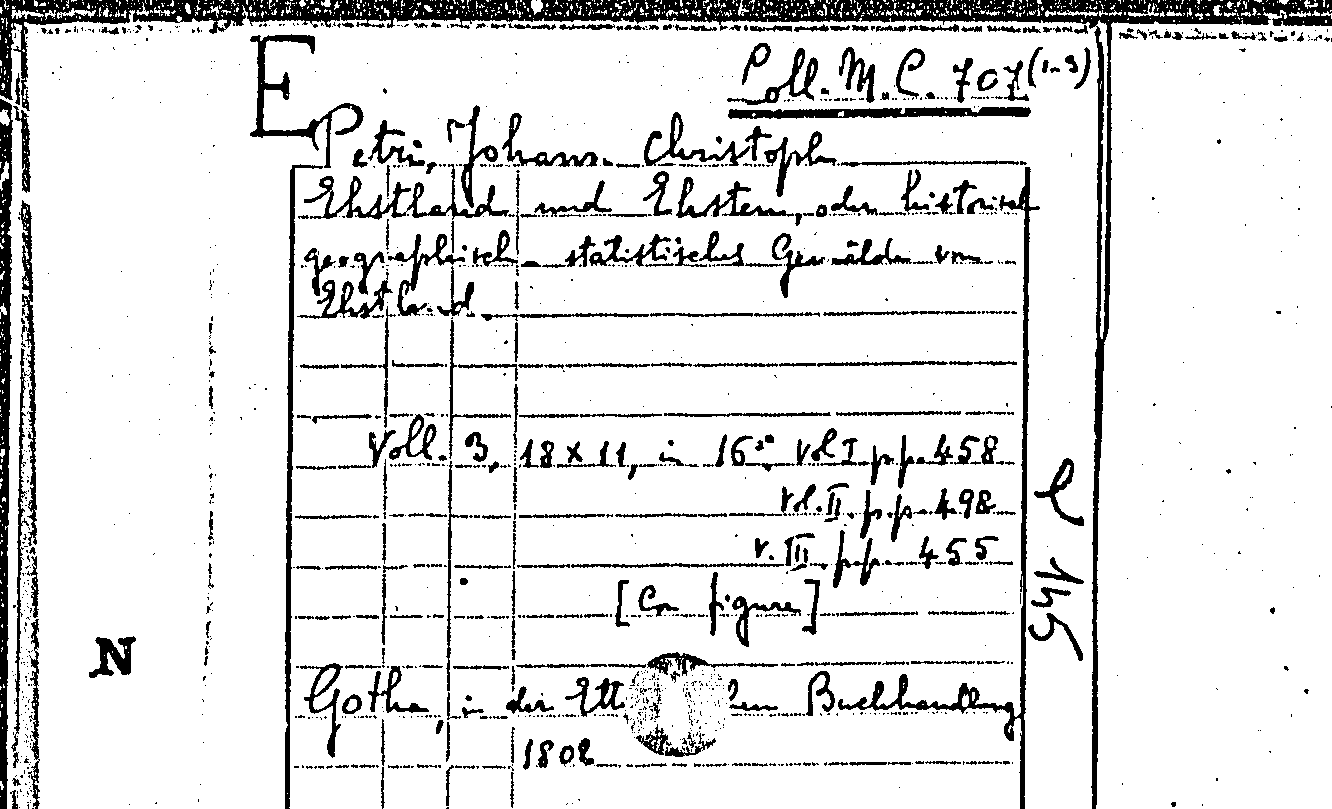 E
Coll. M. C. 707 (1-3)
Petri, Johann. Christoph
Ehstland und Ehsten, oder historisch
geographisch - statistisches Gemälde von
Ehstland.
Voll. 3, 18 x 11, in 16°. Vol I p.p. 458
Vol. II. p.p. 498
v. III. p.p. 455
[Con figure]
Gotha, in der Ett hen Buchhandlung
1802
N